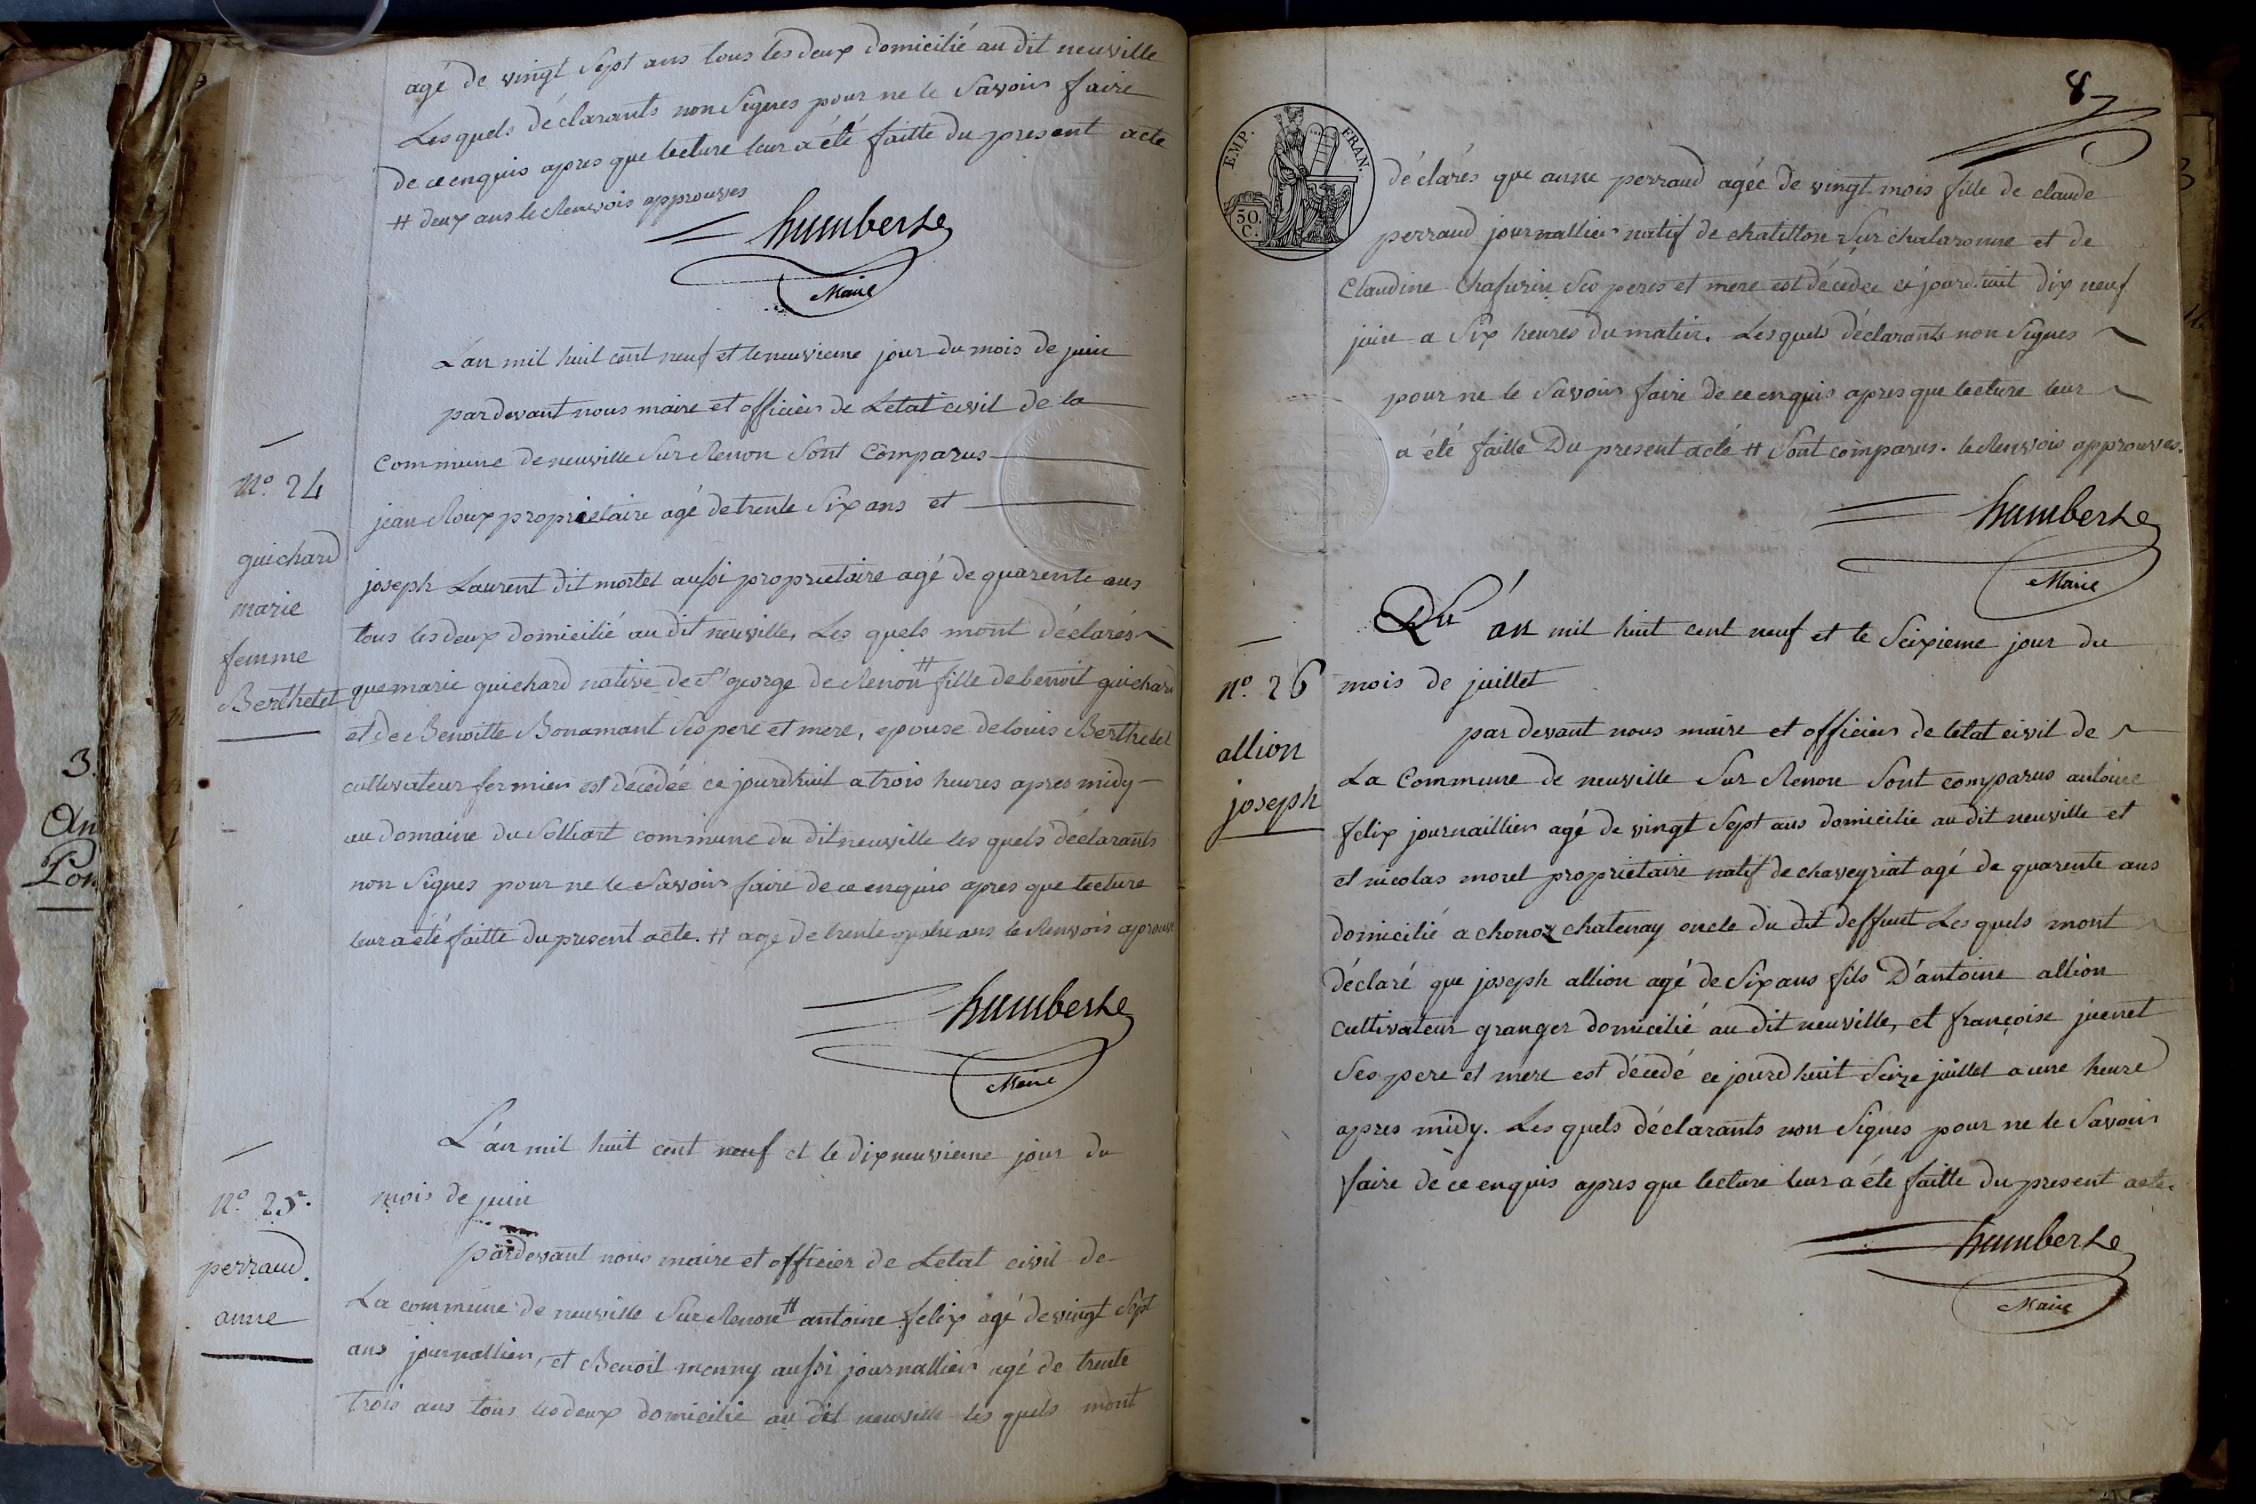 agé de vingt sept ans tous les deux domicilié au dit neuville
Lesquels déclarants non Signes pour ne le Savoir faire
de ce enquis apres que lecture leur a été faitte du present acte
# deux ans le Renvois approuves
humbert
Maire
L'an mil huit cent neuf et le neuvieme jour du mois de juin
par devant nous maire et officier de Letat civil de la
Commune de neuville Sur Renon Sont Comparus
N° 24
jean Roux proprietaire agé de trente Six ans et
guichard
marie
femme
Berthelet
joseph Laurent dit mortel aussi proprietaire agé de quarente ans
tous les deux domicilié au dit neuville, Les quels mont déclarés
que marie guichard native de St george de Renon # fille de benoit guichard
et de Benoitte Bonamant Ses pere et mere, epouse de louis Berthelet
cultivateur fermier est décédée ce jourdhuit a trois heures apres midy
au domaine du commune du dit neuville les quels déclarants
non Signes pour ne le Savoir faire de ce enquis apres que lecture
leur a été faitte du present acte. # age de trente quatre ans le Renvois aprouve
humbert
Maire
L'an mil huit cent neuf et le dix neuvieme jour du
mois de juin
N° 25.
perraud.
anne
pardevant nous maire et officier de Letat civil de
La commune de neuville Sur Renon # antoine felix agé de vingt Sept
ans journallier, et Benoit monny aussi journallier agé de trente
trois ans tous les deux domicilié au dit neuville les quels mont
8
EMP. FRAN.
50. C.
déclarés que anne perraud agée de vingt mois fille de claude
perraud journallier natif de chatillon Sur chalaronne et de
Claudine Chafurin Ses peres et mere est décédee ce jourdhuit dix neuf
juin a Six heures du matin. Lesquels déclarants non Signes
pour ne le Savoir faire de ce enquis apres que lecture leur
a été faitte Du present acté # Sont comparus. le Renvois approuves.
humbert
Maire
L'an mil huit cent neuf et le Seixieme jour du
N° 26
mois de juillet
allion
joseph
par devant nous maire et officier de letat civil de
La Commune de neuville Sur Renon Sont comparus antoine
felix journaillier agé de vingt Sept ans domicilié au dit neuville et
et nicolas morel proprietaire natif de chaveyriat agé de quarente ans
domicilié a chonoz chatenay oncle du dit deffunt Les quels mont
déclaré que joseph allion agé de Six ans fils D'antoine allion
cultivateur granger domicilié au dit neuville, et françoise juenet
Ses pere et mere est décedé ce jourdhuit Seize juillet a une heure
apres midy. Les quels déclarants non Signes pour ne le Savoir
faire de ce enquis apres que lecture leur a été faitte du present acte.
humbert
Maire